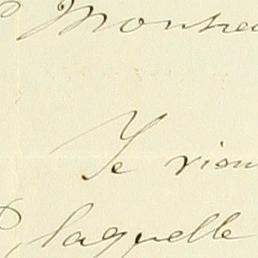 Monsieu
Je vien
laquelle